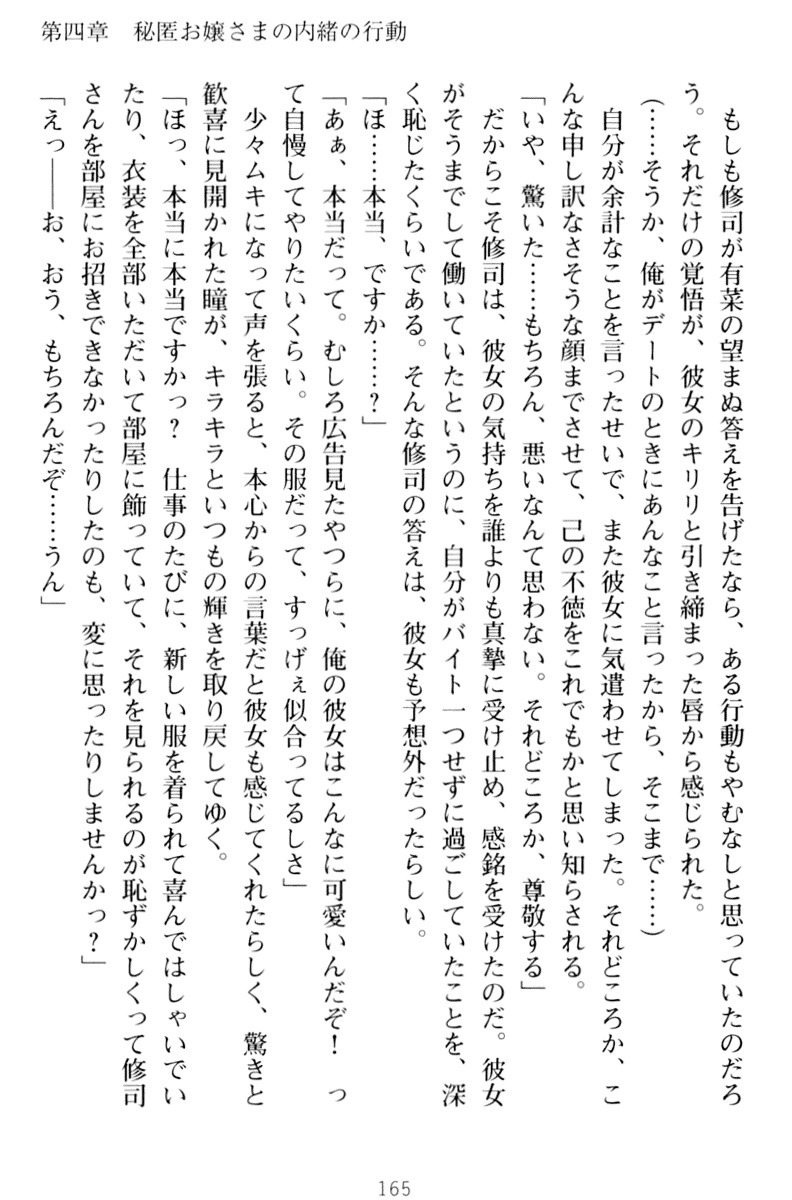 第四章　秘匿お嬢さまの内緒の行動
　もしも修司が有菜の望まぬ答えを告げたなら、ある行動もやむなしと思っていたのだろ
う。それだけの覚悟が、彼女のキリリと引き締まった唇から感じられた。
（……そうか、俺がデートのときにあんなこと言ったから、そこまで……）
　自分が余計なことを言ったせいで、また彼女に気遣わせてしまった。それどころか、こ
んな申し訳なさそうな顔までさせて、己の不徳をこれでもかと思い知らされる。
「いや、驚いた……もちろん、悪いなんて思わない。それどころか、尊敬する」
　だからこそ修司は、彼女の気持ちを誰よりも真摯に受け止め、感銘を受けたのだ。彼女
がそうまでして働いていたというのに、自分がバイト一つせずに過ごしていたことを、深
く恥じたくらいである。そんな修司の答えは、彼女も予想外だったらしい。
「ほ……本当、ですか……？」
「あぁ、本当だって。むしろ広告見たやつらに、俺の彼女はこんなに可愛いんだぞ！　っ
て自慢してやりたいくらい。その服だって、すっげぇ似合ってるしさ」
　少々ムキになって声を張ると、本心からの言葉だと彼女も感じてくれたらしく、驚きと
歓喜に見開かれた瞳が、キラキラといつもの輝きを取り戻してゆく。
「ほっ、本当に本当ですかっ？　仕事のたびに、新しい服を着られて喜んではしゃいでい
たり、衣装を全部いただいて部屋に飾っていて、それを見られるのが恥ずかしくって修司
さんを部屋にお招きできなかったりしたのも、変に思ったりしませんかっ？」
「えっ――お、おう、もちろんだぞ……うん」
165